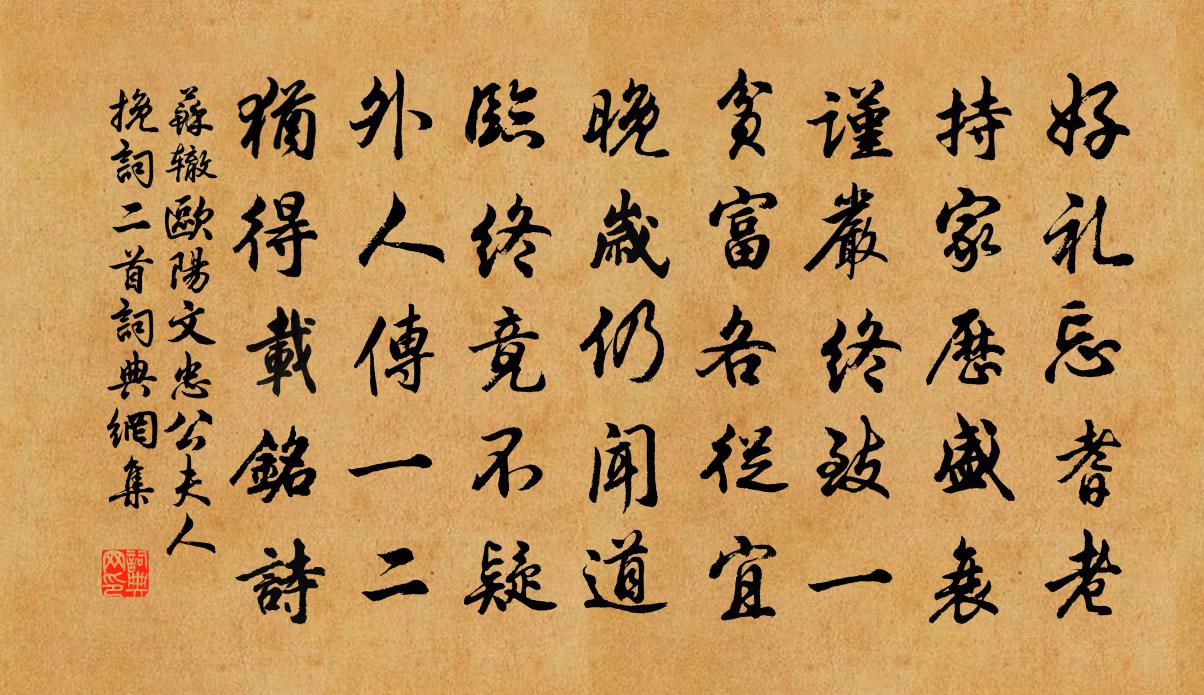 好礼忘耆老
持家歷盛衰
謹嚴終致一
貧富各從宜
晚歲仍聞道
臨終竟不疑
外人傳一二
猶得載銘詩
蘇辙歐陽文忠公夫人
挽詞二首詞典網集
詞典
网印